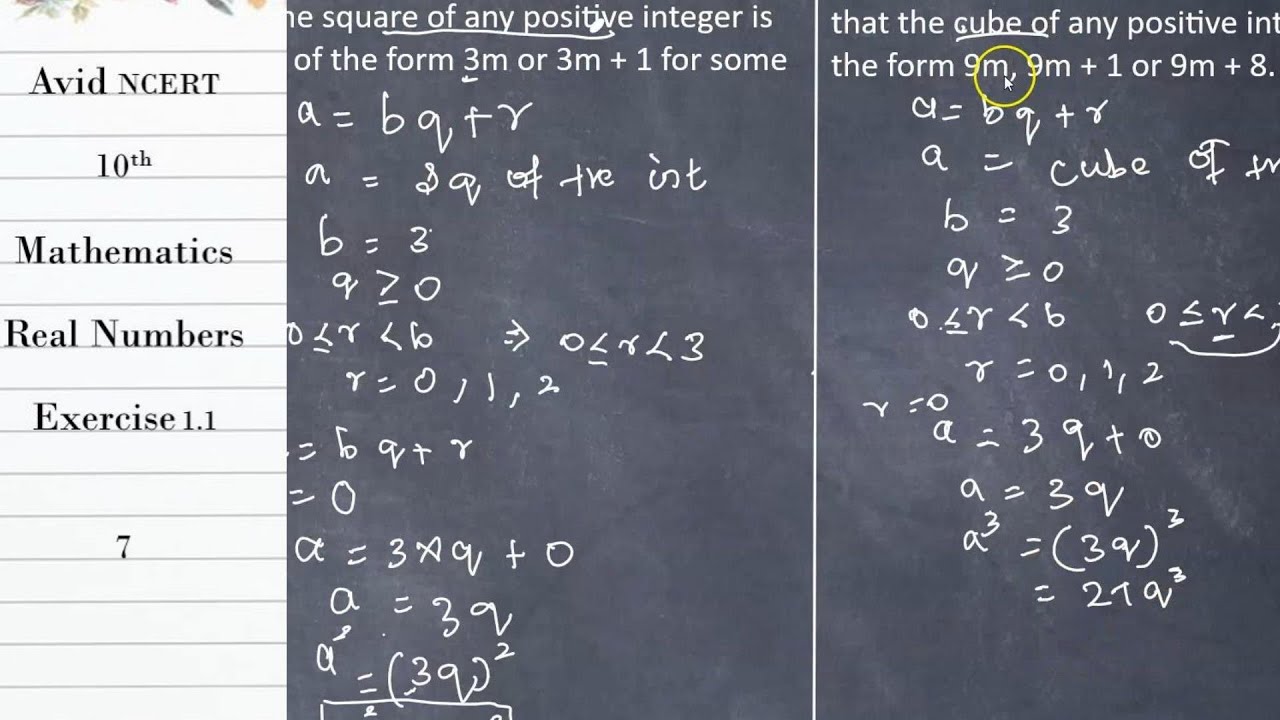 Avid NCERT
10th
Mathematics
Real Numbers
Exercise 1.1
7
ne square of any positive integer is
of the form 3m or 3m + 1 for some
a = bq + r
a = sq of +ve int
b = 3
q ≥ 0
0 ≤ r < b ⇒ 0 ≤ r < 3
r = 0, 1, 2
= bq + r
= 0
a = 3 × q + 0
a = 3q
a² = (3q)²
that the cube of any positive int
the form 9m, 9m + 1 or 9m + 8.
a = bq + r
a = cube of +v
b = 3
q ≥ 0
0 ≤ r < b 0 ≤ r <
r = 0, 1, 2
r = 0
a = 3q + 0
a = 3q
a³ = (3q)³
= 27q³